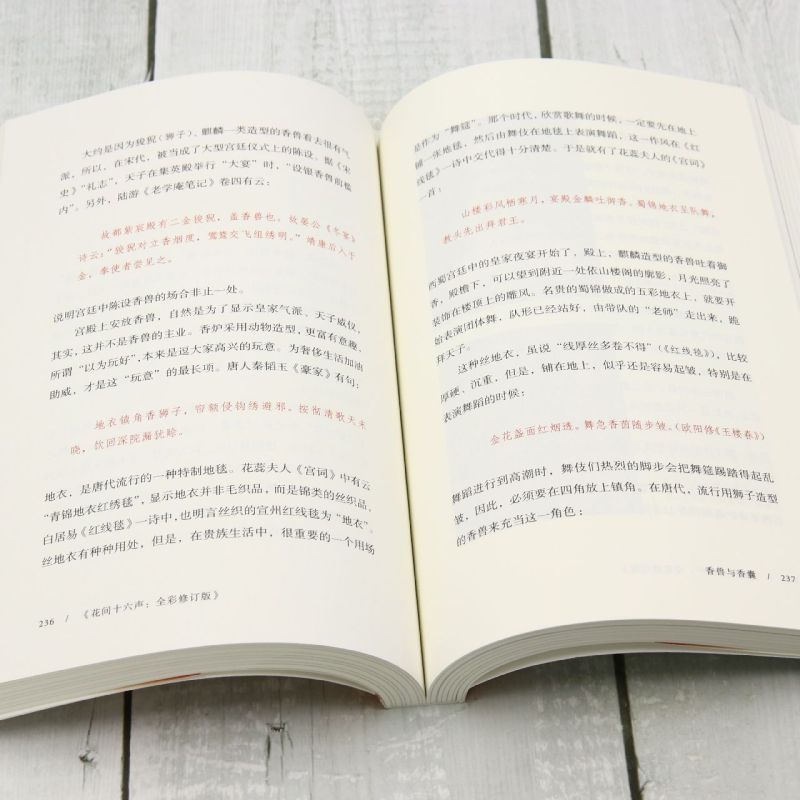 大约是因为狻猊（狮子）、麒麟一类造型的香兽看去很有气
派，所以，在宋代，被当成了大型宫廷仪式上的陈设。据《宋
史》“礼志”，天子在集英殿举行“大宴”时，“设银香兽前槛
内”。另外，陆游《老学庵笔记》卷四有云：
故都紫宸殿有二金狻猊，盖香兽也。故晏公《冬宴》
诗云：“狻猊对立香烟度，鸑鷟交飞组绣明。”靖康后入于
金，奉使者尝见之。
说明宫廷中陈设香兽的场合非止一处。
宫殿上安放香兽，自然是为了显示皇家气派、天子威仪，
其实，这并不是香兽的主业。香炉采用动物造型，更富有意趣，
所谓“以为玩好”，本来是逗大家高兴的玩意。为奢侈生活加油
助威，才是这“玩意”的最长项。唐人秦韬玉《豪家》有句：
地衣镇角香狮子，帘额侵钩绣避邪。按彻清歌天未
晓，饮回深院漏犹赊。
地衣，是唐代流行的一种特制地毯。花蕊夫人《宫词》中有云
“青锦地衣红绣毯”，显示地衣并非毛织品，而是锦类的丝织品，
白居易《红线毯》一诗中，也明言丝织的宣州红线毯为“地衣”。
丝地衣有种种用处，但是，在贵族生活中，很重要的一个用场
236 / 《花间十六声：全彩修订版》
是作为“舞筵”。那个时代，欣赏歌舞的时候，一定要先在地上
铺一张地毯，然后由舞伎在地毯上表演舞蹈，这一作风在《红
线毯》一诗中交代得十分清楚。于是就有了花蕊夫人的《宫词》
一首：
山楼彩凤栖寒月，宴殿金麟吐御香。蜀锦地衣呈队舞，
教头先出拜君王。
西蜀宫廷中的皇家夜宴开始了，殿上，麒麟造型的香兽吐着御
香，殿檐下，可以望到附近一处依山楼阁的廓影，月光照亮了
装饰在楼顶上的雕凤。名贵的蜀锦做成的五彩地衣上，就要开
始表演团体舞，队形已经站好，由带队的“老师”走出来，跪
拜天子。
这种丝地衣，虽说“线厚丝多卷不得”（《红线毯》），比较
厚硬、沉重，但是，铺在地上，似乎还是容易起皱，特别是在
表演舞蹈的时候：
金花盏面红烟透。舞急香茵随步皱。（欧阳修《玉楼春》）
舞蹈进行到高潮时，舞伎们热烈的脚步会把舞筵踢踏得起乱
皱，因此，必须要在四角放上镇角。在唐代，流行用狮子造型
的香兽来充当这一角色：
香兽与香囊 / 237